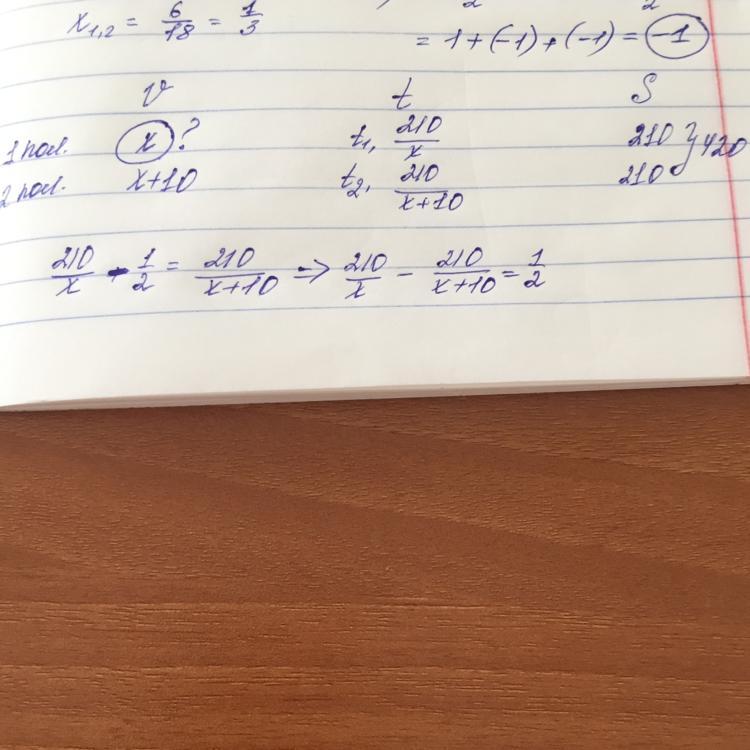 x₁,₂ = 6/18 = 1/3
= 1 + (-1) + (-1) = -1
v t S
1 пол. x ? t₁, 210/x 210 } 420
2 пол. x+10 t₂, 210/x+10 210
210/x - 1/2 = 210/x+10 => 210/x - 210/x+10 = 1/2